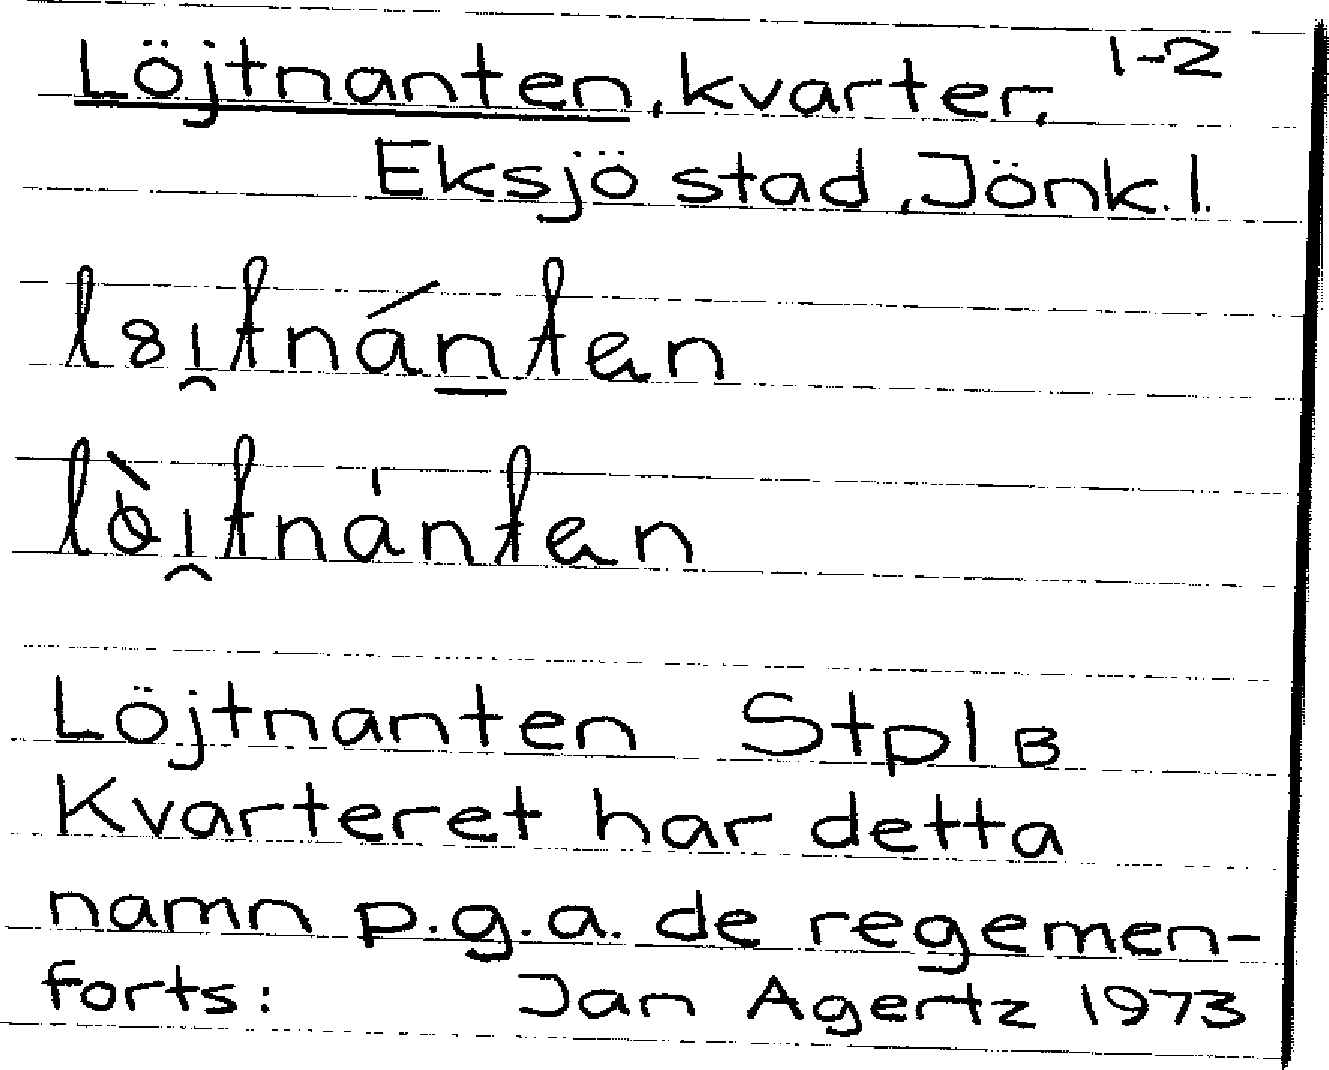 Löjtnanten, kvarter, 1-2
Eksjö stad, Jönk. l.
l8i̯tnán̲tęn
lò̀i̯tnàntęn
Löjtnanten Stpl B
Kvarteret har detta
namn p.g.a. de regemen-
forts: Jan Agertz 1973